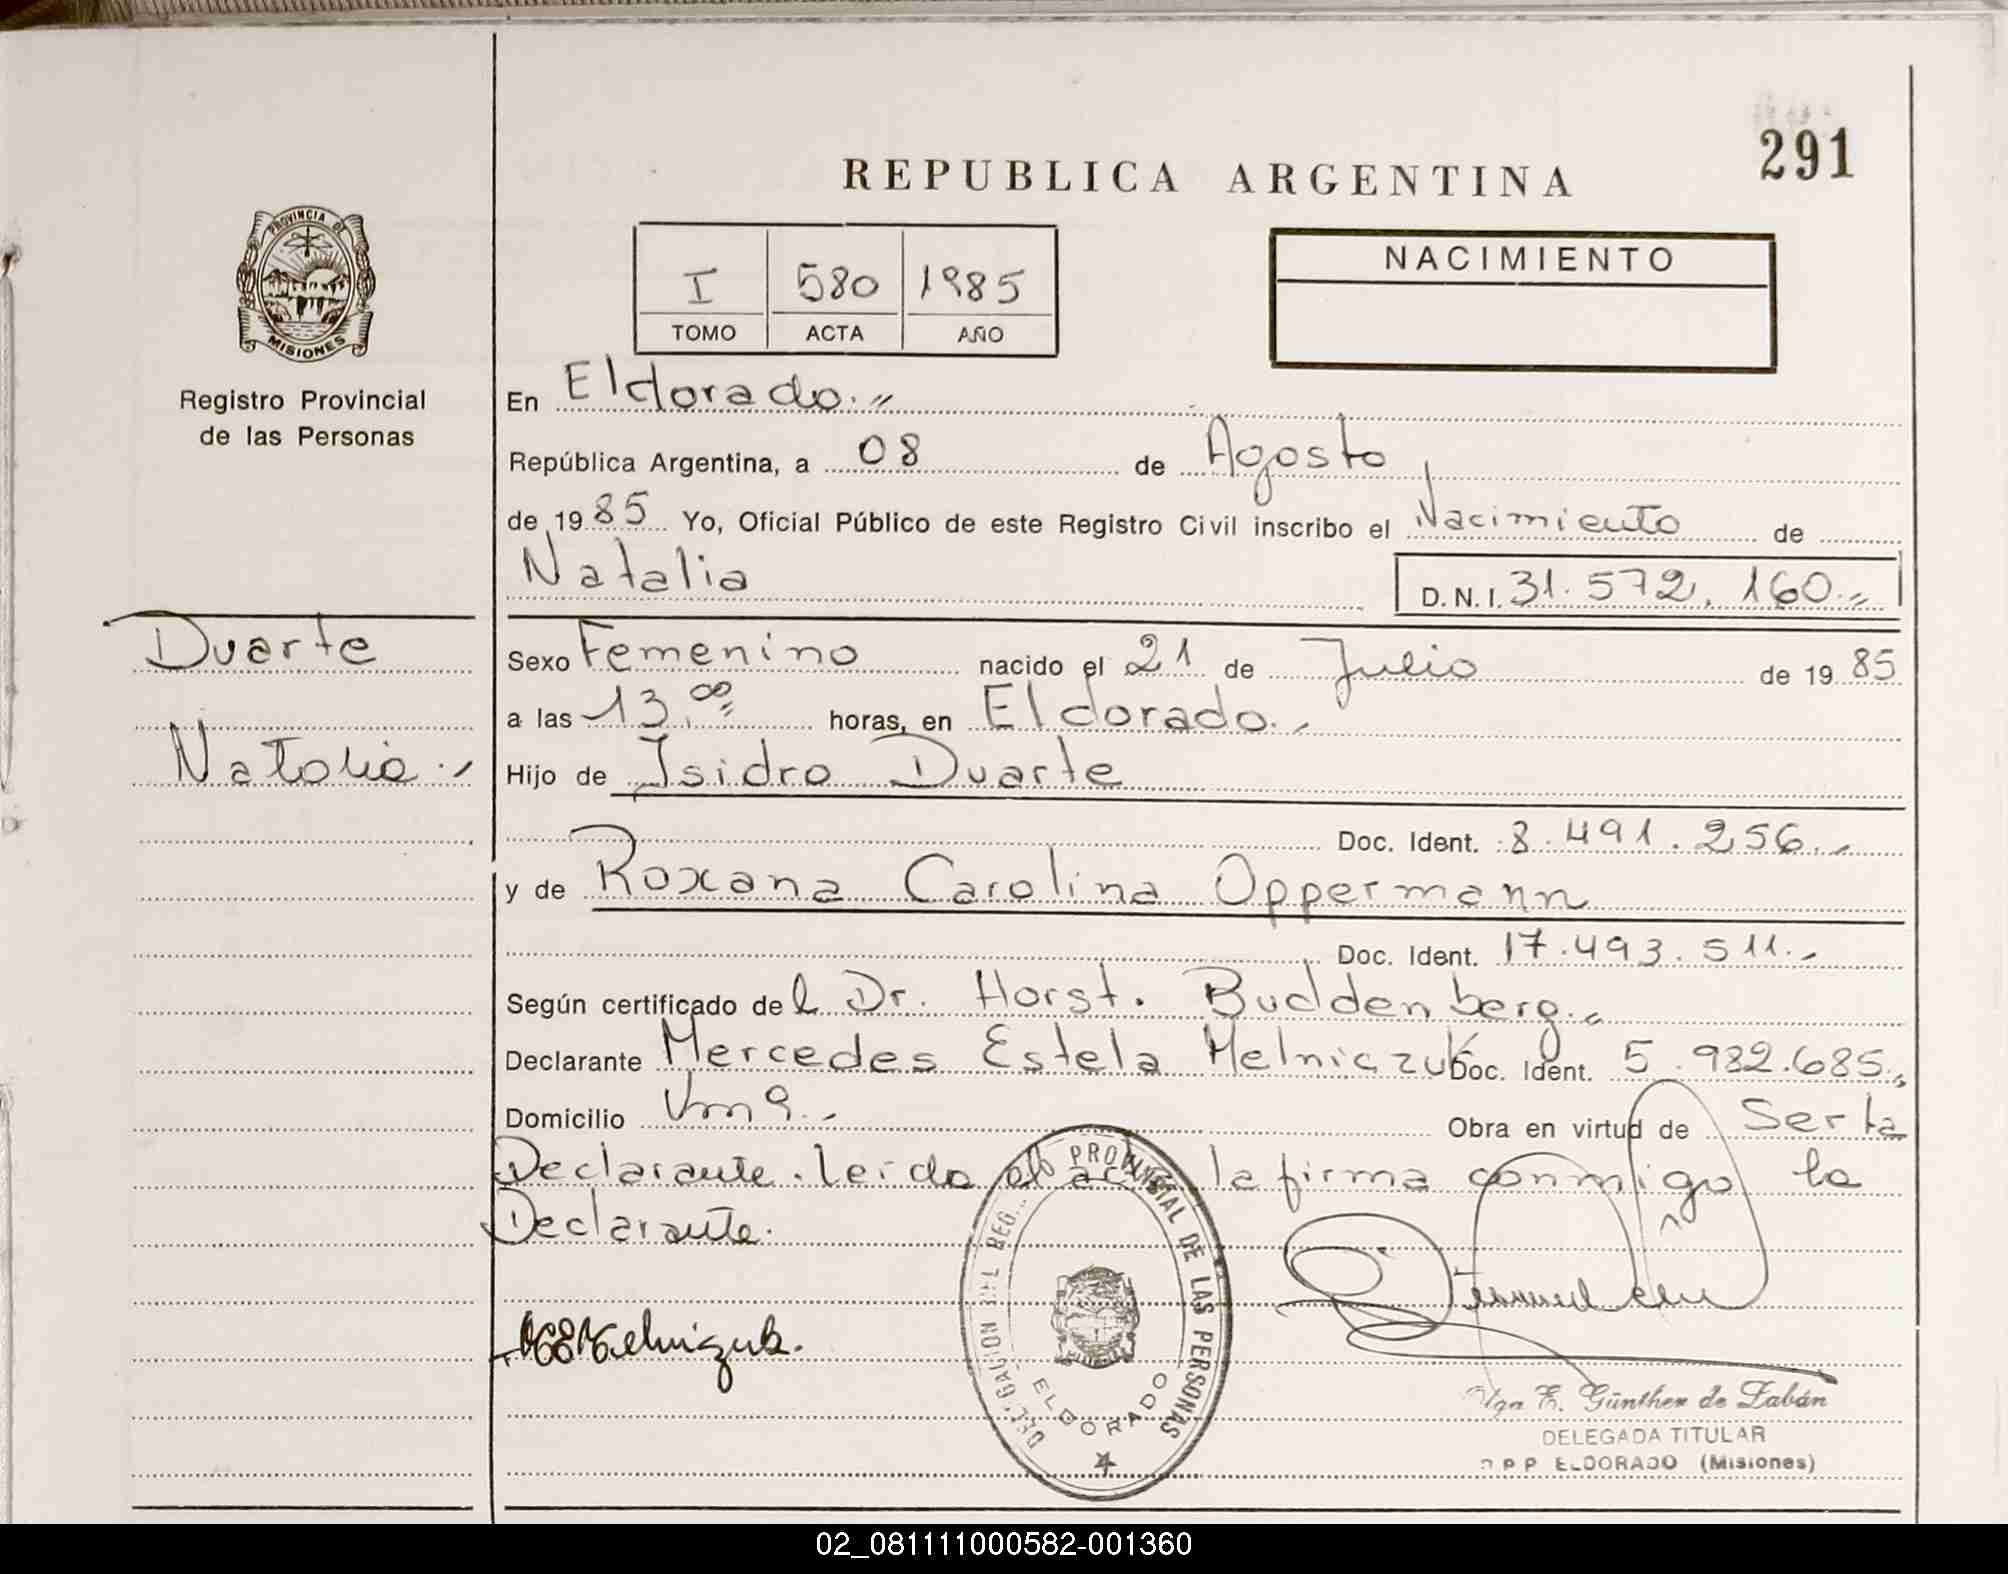 291
REPUBLICA ARGENTINA
PROVINCIA DE
MISIONES
Registro Provincial
de las Personas
I 580 1985
TOMO ACTA AÑO
NACIMIENTO
En Eldorado.
República Argentina, a 08 de Agosto
de 1985 Yo, Oficial Público de este Registro Civil inscribo el Nacimiento de
Natalia D.N.I. 31.572.160.
Duarte
Natalia.
Sexo Femenino nacido el 21 de Julio de 1985
a las 13,00 horas, en Eldorado.
Hijo de Isidro Duarte
Doc. Ident. 8.491.256.
y de Roxana Carolina Oppermann
Doc. Ident. 17.493.511.
Según certificado del Dr. Horst. Buddenberg.
Declarante Mercedes Estela Melniczuk Doc. Ident. 5.982.685.
Domicilio Obra en virtud de Ser la
Declarante. leído el acta la firma conmigo la
Declarante.
PROVINCIAL DE LAS PERSONAS
ELDORADO
E. Günther de Zabán
DELEGADA TITULAR
ELDORADO (Misiones)
02_081111000582-001360